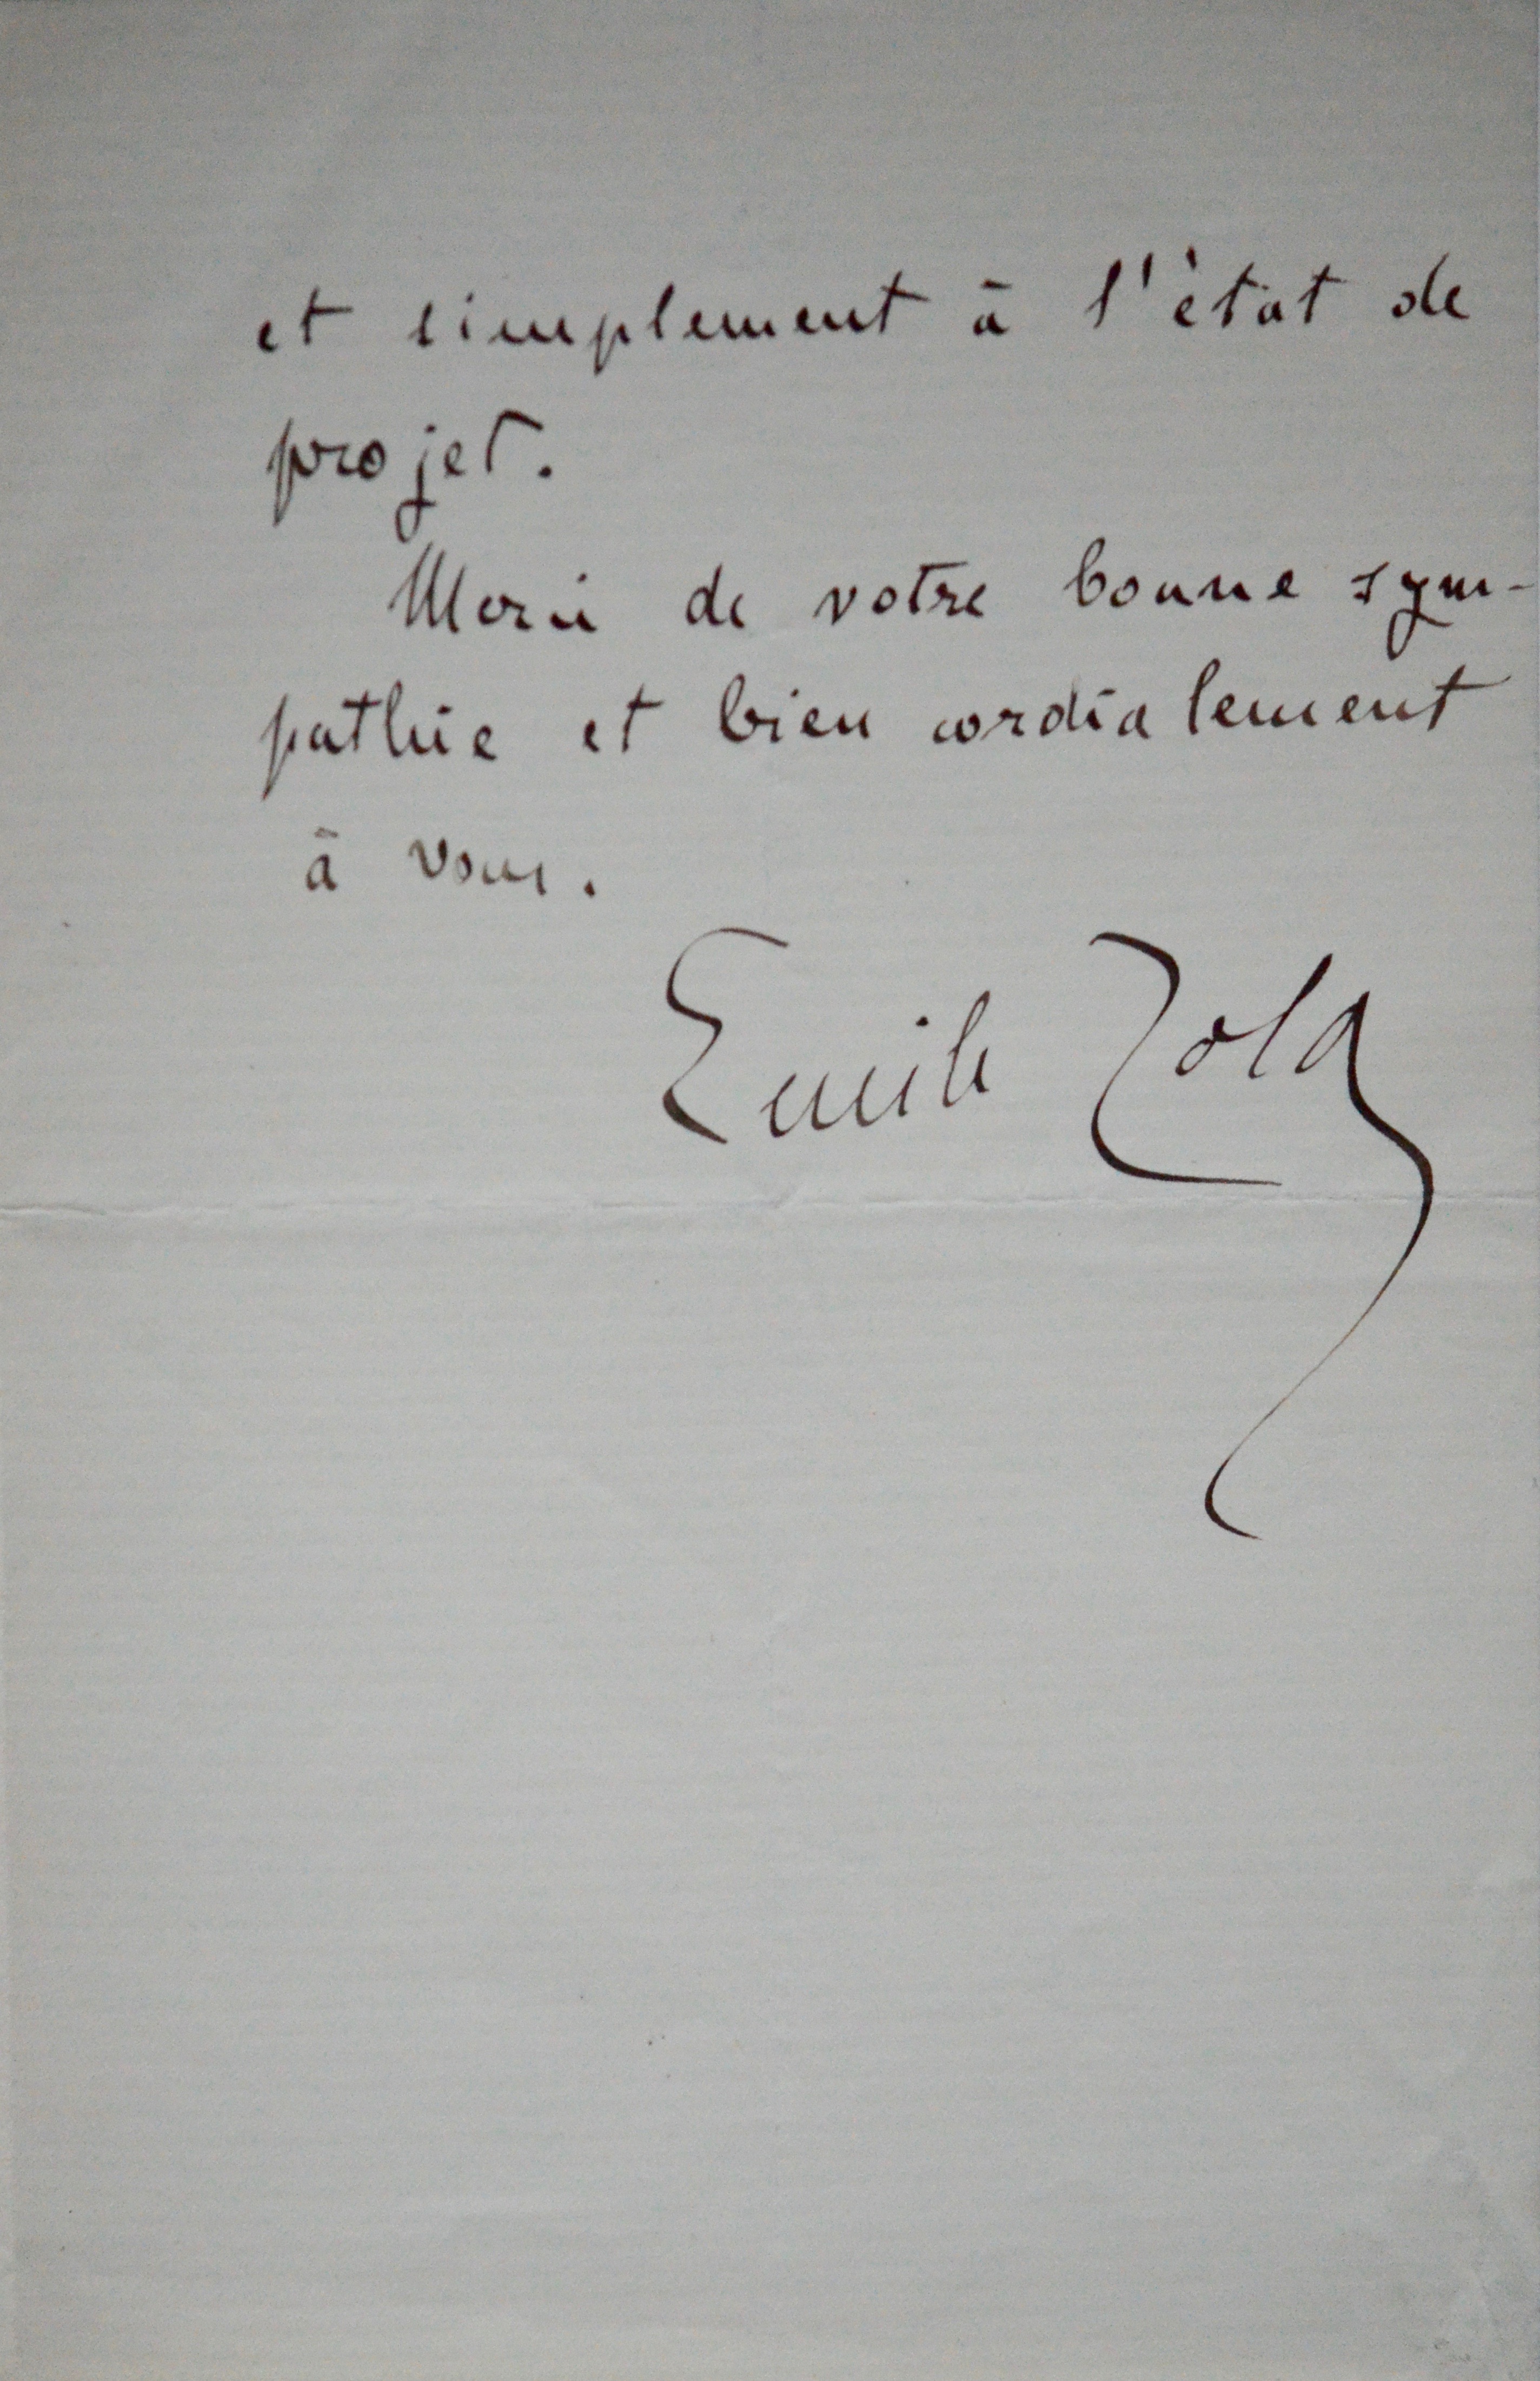 et simplement à l'état de
projet.
Merci de votre bonne sym-
pathie et bien cordialement
à vous.
Emile Zola